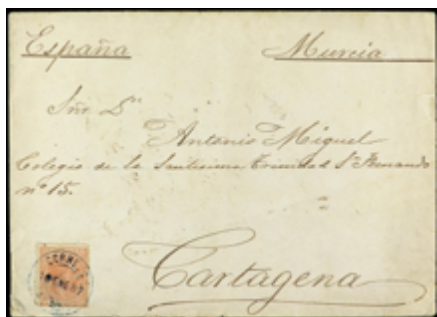 España Murcia
Sñr Dn
Antonio Miguel
Colegio de la Santisima Trinidad Sn Fernando
nº 15.
Cartagena